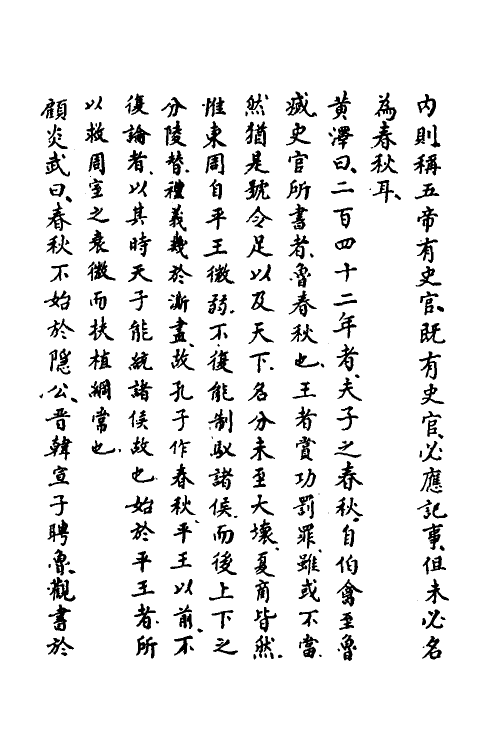 内則稱五帝有史官、既有史官、必應記事、但未必名
為春秋耳、
黄澤曰、二百四十二年者、夫子之春秋、自伯禽至魯
滅史官所書者、魯春秋也、王者賞功罰罪、雖或不當、
然猶是號令足以及天下、名分未至大壞、夏商皆然、
惟東周自平王微弱、不復能制馭諸侯、而後上下之
分陵替、禮義幾於澌盡、故孔子作春秋、平王以前、不
復論者、以其時天子能統諸侯故也、始於平王者、所
以救周室之衰微而扶植綱常也、
顧炎武曰、春秋不始於隱公、晋韓宣子聘魯、觀書於